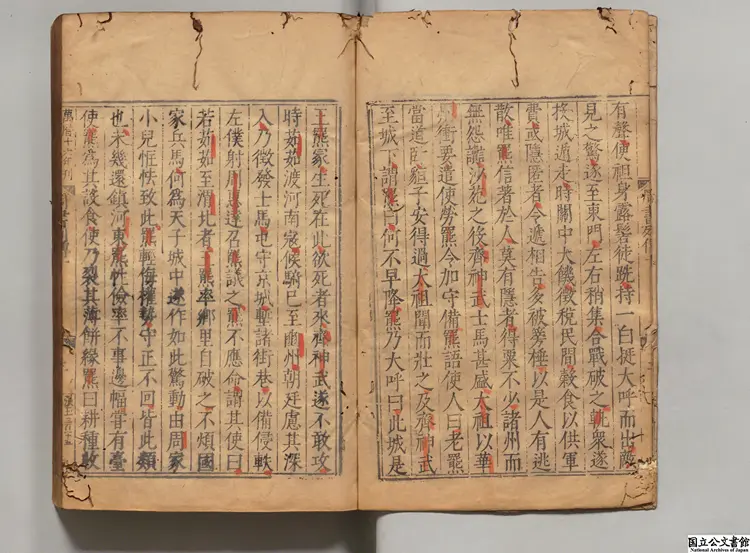 有聲便袒身露髻徒跣持一白挺大呼而出敵
見之驚遂至東門左右稍集合戰破之軌衆遂
投城遁走時關中大饑徵稅民間穀食以供軍
費或隱匿者令遞相告多被篣棰以是人有逃
散唯羆信著於人莫有隱者得粟不少諸州而
無怨讟沙苑之後齊神武士馬甚盛太祖以華
州衝要遣使勞羆令加守備羆語使人曰老羆
當道臥貆子安得過太祖聞而壯之及齊神武
至城下謂羆曰何不早降羆乃大呼曰此城是
王羆冢生死在此欲死者來齊神武遂不敢攻
時茹茹渡河南寇候騎已至豳州朝廷慮其深
入乃徵發士馬屯守京城塹諸街巷以備侵軼
左僕射周惠達召羆議之羆不應命謂其使曰
若茹茹至渭北者王羆率鄉里自破之不煩國
家兵馬何爲天子城中遂作如此驚動由周家
小兒恇怯致此羆輕侮權勢守正不回皆此類
也未幾還鎭河東羆性儉率不事邊幅甞有臺
使羆爲其設食使乃裂其薄餅緣羆曰耕種收
萬曆十六年刊
国立公文書館
National Archives of Japan